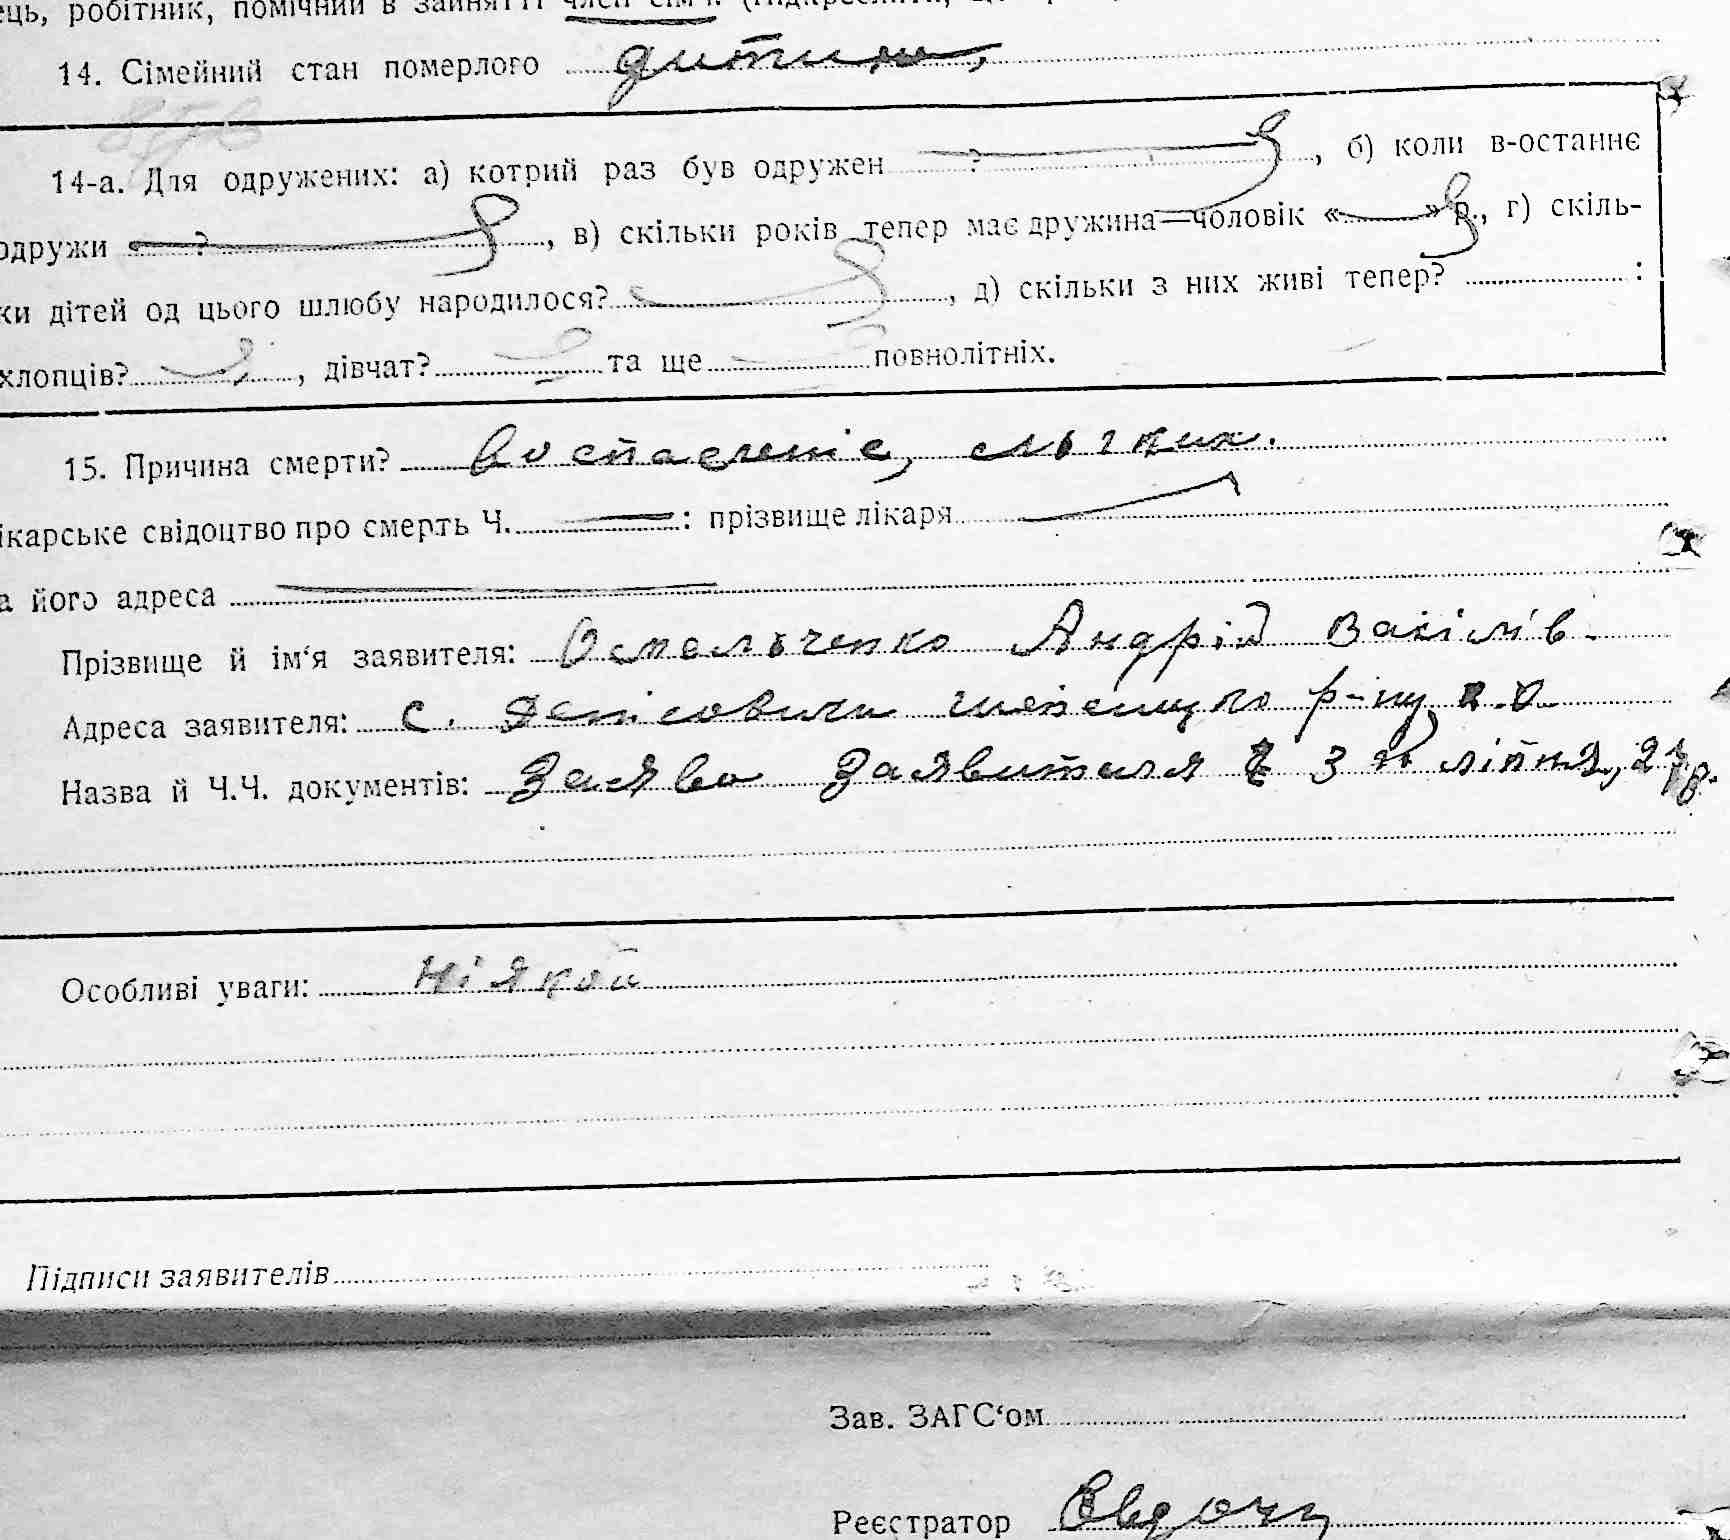 ець, робітник, помічний в зайнятті член сім'ї.
14. Сімейний стан померлого дитина,
14-а. Для одружених: а) котрий раз був одружен ?, б) коли в-останнє
одружи « ?, в) скільки років тепер має дружина—чоловік « » р., г) скіль-
ки дітей од цього шлюбу народилося?, д) скільки з них живі тепер? :
хлопців?, дівчат? та ще повнолітніх.
15. Причина смерти? Воспаление, льгких.
ікарське свідоцтво про смерть Ч. — : прізвище лікаря
а його адреса
Прізвище й ім‘я заявителя: Омельченко Андрій Васілів.
Адреса заявителя: с. р-ну
Назва й Ч.Ч. документів: Заява Заявителя 3 ліпня,
Особливі уваги: Ніякой
Підписи заявителів
Зав. ЗАГС‘ом
Реєстратор